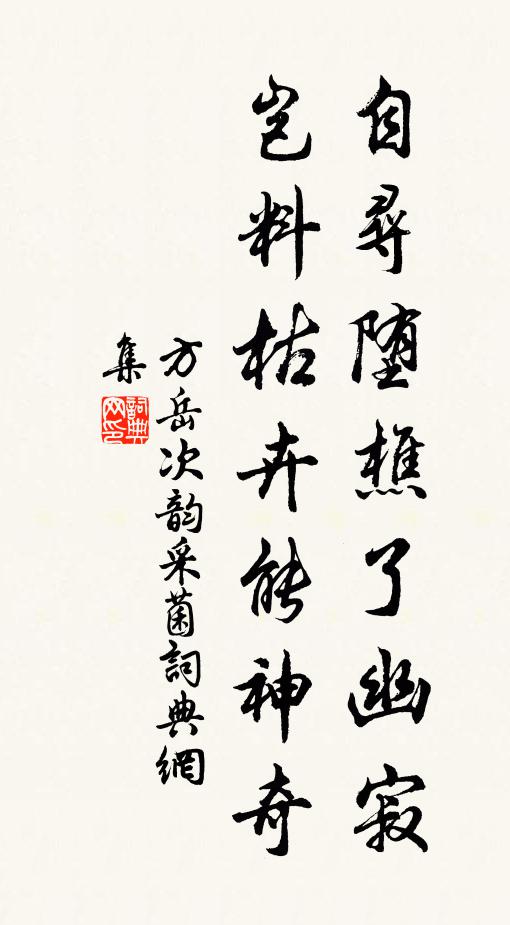 自尋堕樵了幽寂
豈料枯卉能神奇
方岳次韵采菌詞典網
集
詞典网印